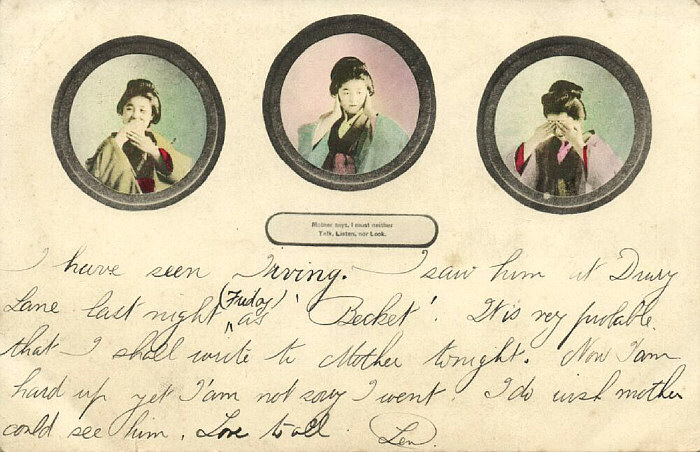 Mother says, I must neither
Talk, Listen, nor Look.
I have seen Irving. I saw him at Drury
Lane last night (Friday) as 'Becket'. It is very probable
that I shall write to Mother tonight. Now I am
hard up yet I'am not sorry I went. I do wish mother
could see him. Love to all Len.